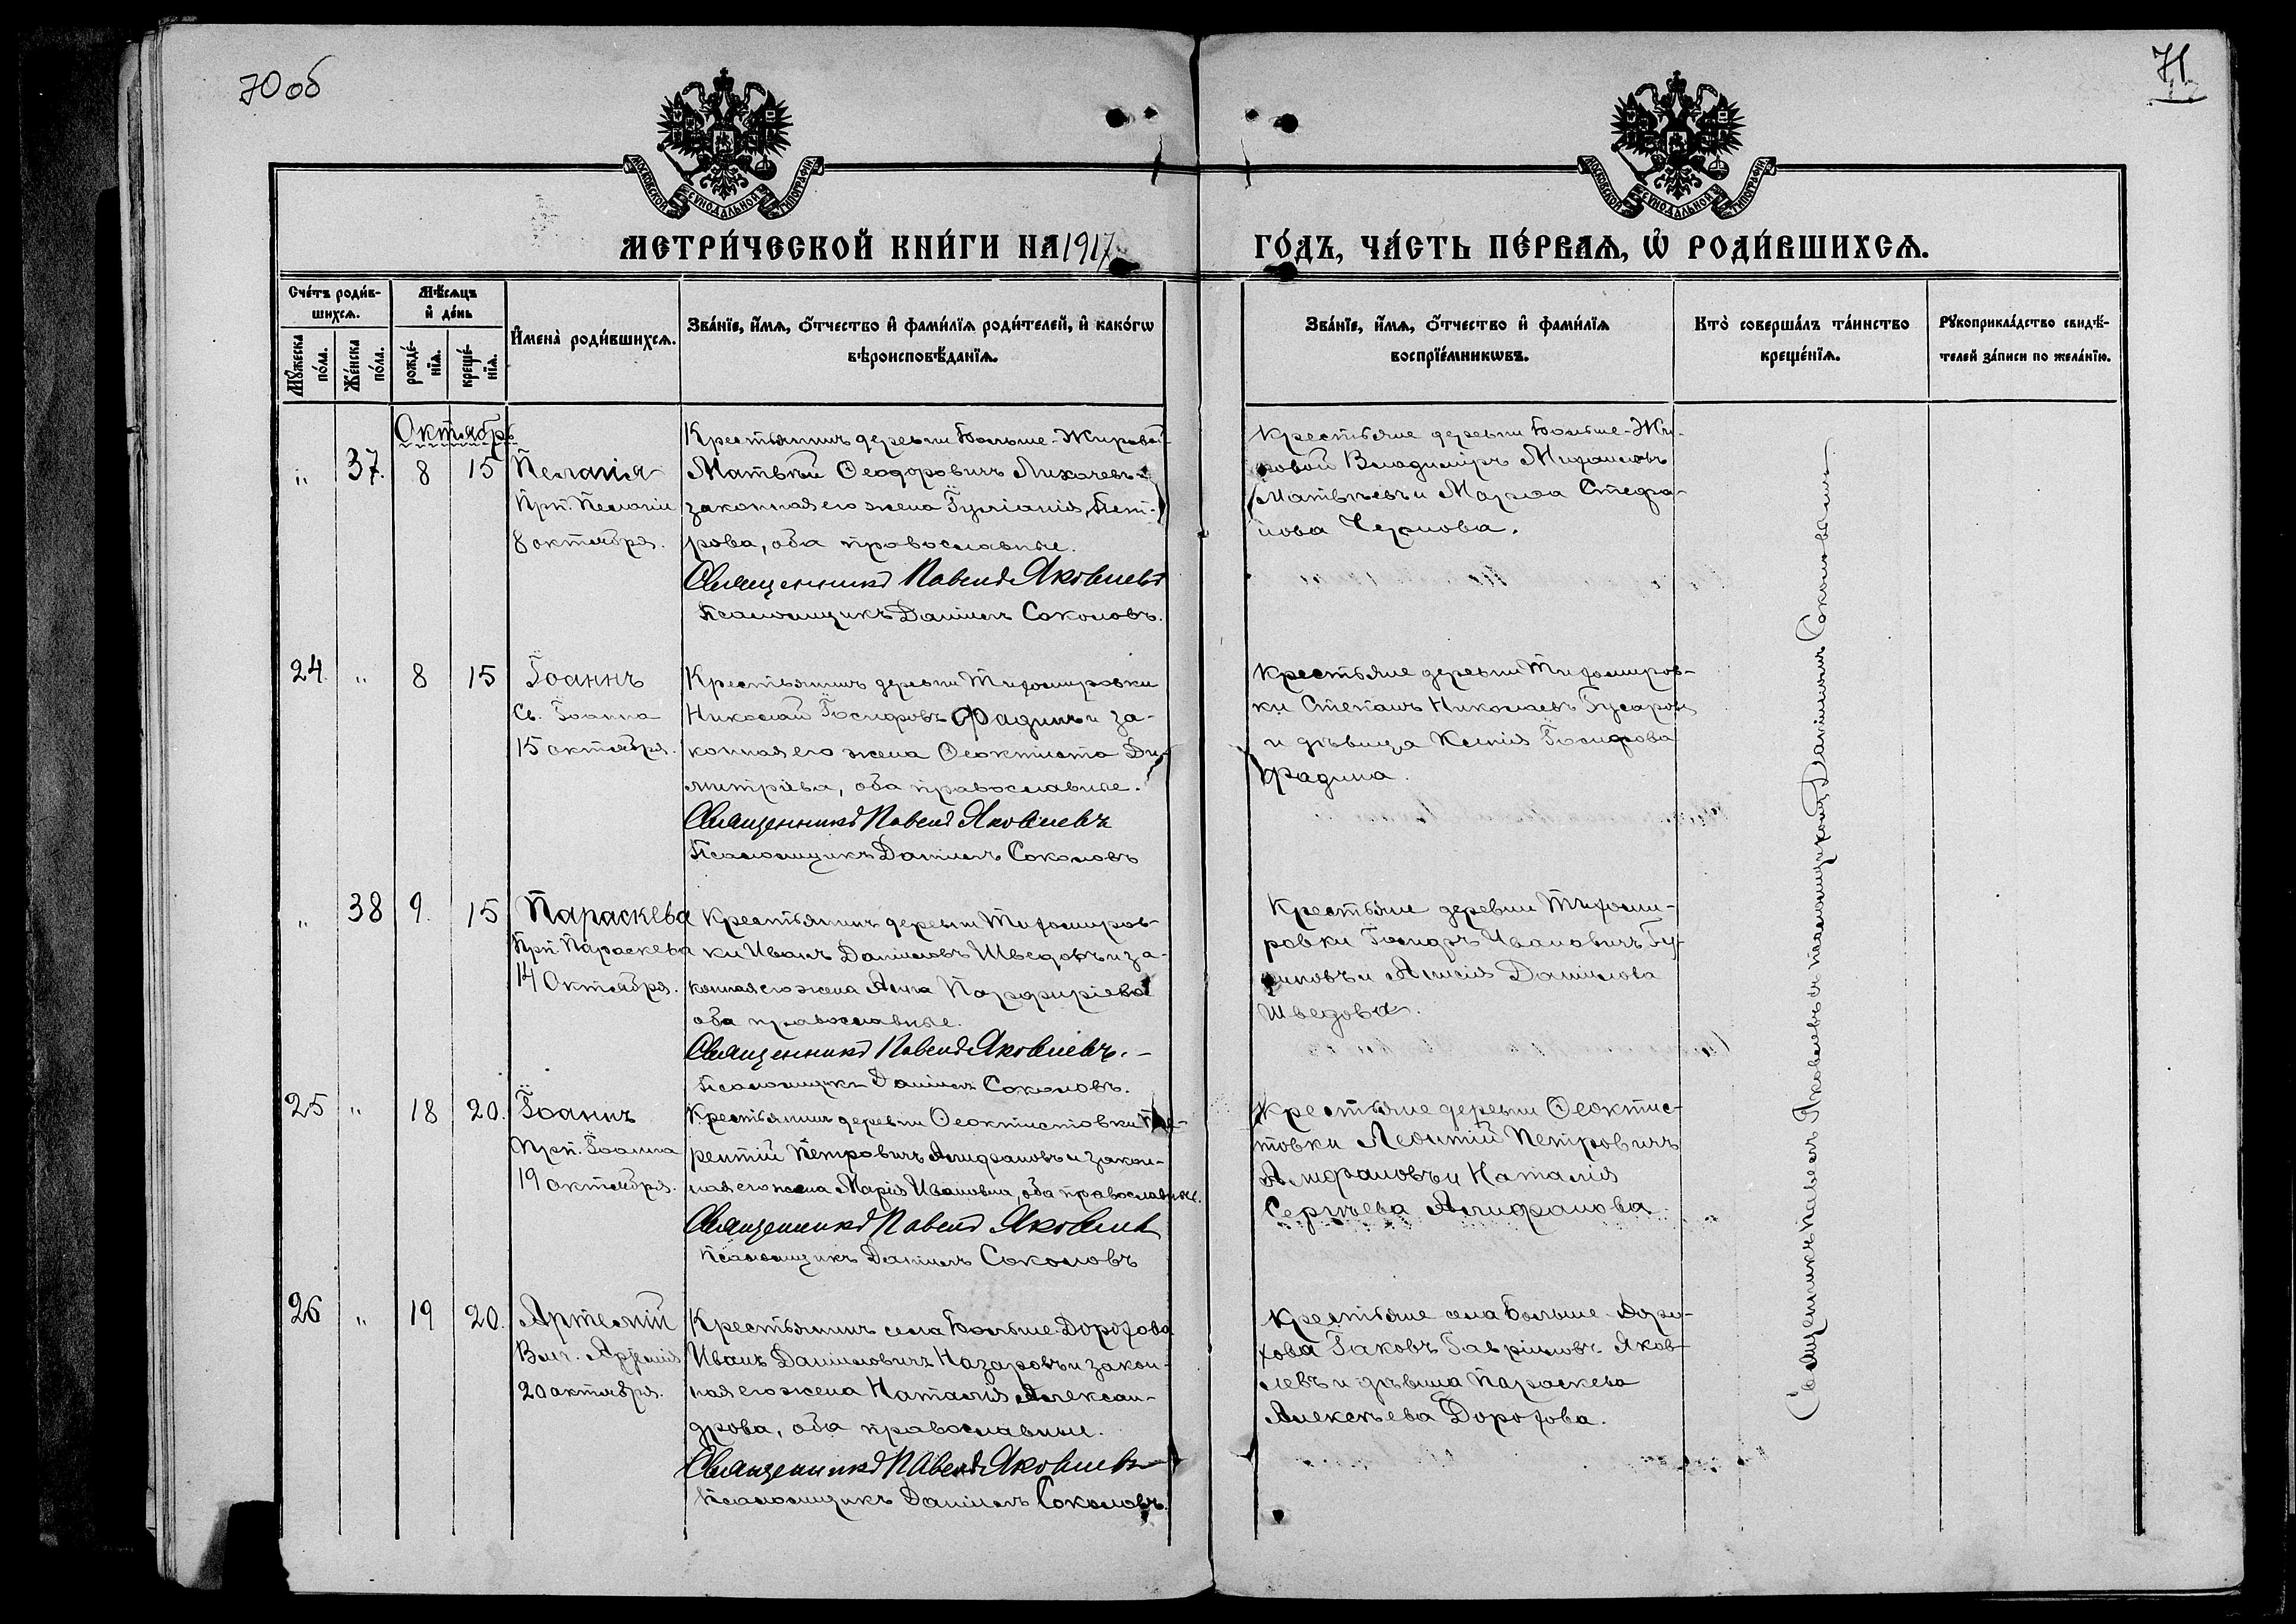 70 об
71
МОСКОВСКОЙ СѴНОДАЛЬНОЙ ТИПОГРАФІИ
МОСКОВСКОЙ СѴНОДАЛЬНОЙ ТИПОГРАФІИ
МЕТРИ́ЧЕСКОЙ КНИ́ГИ НА 1917
ГО́ДЪ, ЧА́СТЬ ПЕ́РВАѦ, Ѡ҆ РОДИ́ВШИХСѦ.
Сче́тъ роди́в-
шихсѧ.
Мѣ́сѧцъ
и҆ де́нь
Мꙋ́жеска
по́ла.
Же́нска
по́ла.
рожде́-
нїѧ.
креще́-
нїѧ.
И҆мена̀ роди́вшихсѧ.
Зва́нїе, и҆́мѧ, ѻ҆́тчество и҆ фами́лїѧ роди́телей, и҆ како́гѡ
вѣроисповѣ́данїѧ.
Зва́нїе, и҆́мѧ, ѻ҆́тчество и҆ фами́лїѧ
воспрїе́мникѡвъ.
Кто̀ соверша́лъ та́инство
креще́нїѧ.
Рꙋкоприкла́дство свидѣ́-
телей за́писи по жела́нїю.
Октябрь
„ 37. 8 15 Пелагія
Прп. Пелагіи
8 октября.
Крестьянинъ деревни Больше-Жировой
Матвѣй Ѳеодоровичъ Лихачевъ и
законная его жена Іуліанія Пет-
рова, оба православные.
Священникъ Павелъ Яковлевъ
Псаломщикъ Даніилъ Соколовъ.
Крестьяне деревни Больше-Жи-
ровой Владиміръ Михаиловъ
Матвѣевъ и Марѳа Стефа-
нова Чернова.
24 „ 8 15 Іоаннъ
Св. Іоанна
15 октября.
Крестьянинъ деревни Тихомировки
Николай Іосифовъ Фадинъ и за-
конная его жена Ѳеоктиста Ди-
митріева, оба православные.
Священникъ Павелъ Яковлевъ
Псаломщикъ Даніилъ Соколовъ
Крестьяне деревни Тихомиров-
ки Степанъ Николаевъ Гусаровъ
и дѣвица Ксенія Іосифова
Фадина.
„ 38 9. 15 Параскева
Прп. Параскева
14 Октября.
Крестьянинъ деревни Тихомиров-
ки Иванъ Даніиловъ Шведовъ и за-
конная его жена Анна Порфиріева
оба православные.
Священникъ Павелъ Яковлевъ. -
Псаломщикъ Даніилъ Соколовъ.
Крестьяне деревни Тихоми-
ровки Іосифъ Ивановичъ
Даніилова
Шведова.
25 „ 18 20. Іоаннъ
Прп. Іоанна
19 октября.
Крестьянинъ деревни Ѳеоктистовки Те-
рентій Петровичъ Алифановъ и закон-
ная его жена Марія Ивановна, оба православные.
Священникъ Павелъ Яковлевъ
Псаломщикъ Даніилъ Соколовъ
Крестьяне деревни Ѳеоктис-
товки Леонтій Петровичъ
Алифановъ и Наталія
Сергѣева Алифанова
26 „ 19 20. Артемій
Влмч. Артемія
20 октября.
Крестьянинъ села Больше-Дорохова
Иванъ Даніиловичъ Назаровъ и закон-
ная его жена Наталія Алексан-
дрова, оба православные.
Священникъ Павелъ Яковлевъ
Псаломщикъ Даніилъ Соколовъ.
Крестьяне села Больше-Доро-
хова Іаковъ Гавріиловъ Яков-
левъ и дѣвица Параскева
Алексѣева Дорохова.
Священникъ Павелъ Яковлевъ съ псаломщикомъ Даніиломъ Соколовымъ